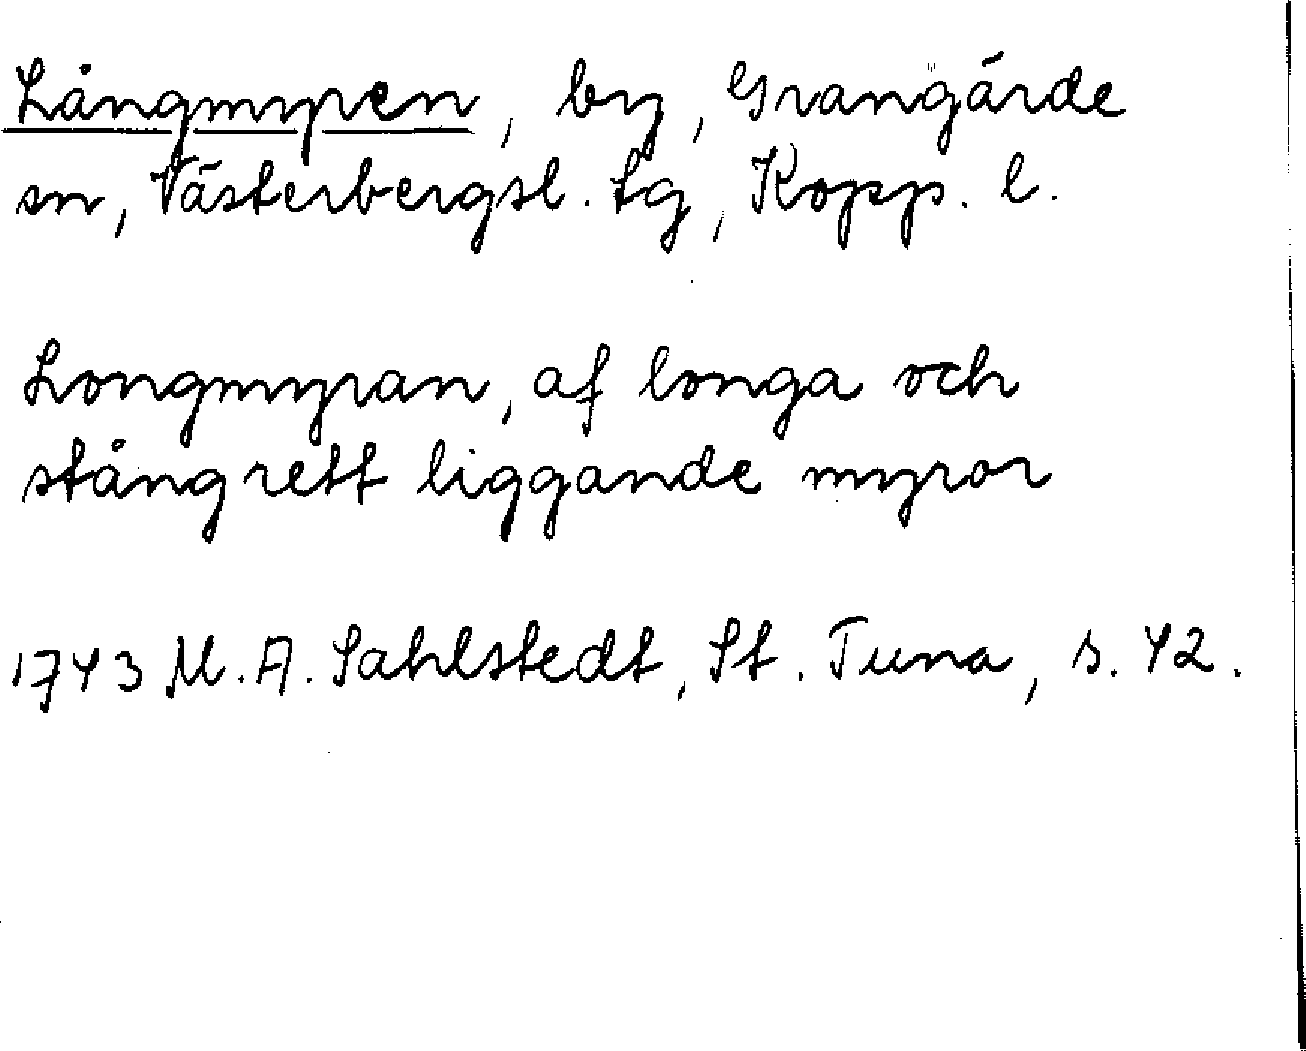 Långmyren, by, Grangärde
sn, Västerbergsl. tg, Kopp. l.
Longmyran, af longa och
stång rett liggande myror
1743 M. A. Sahlstedt, St. Tuna, s. 42.